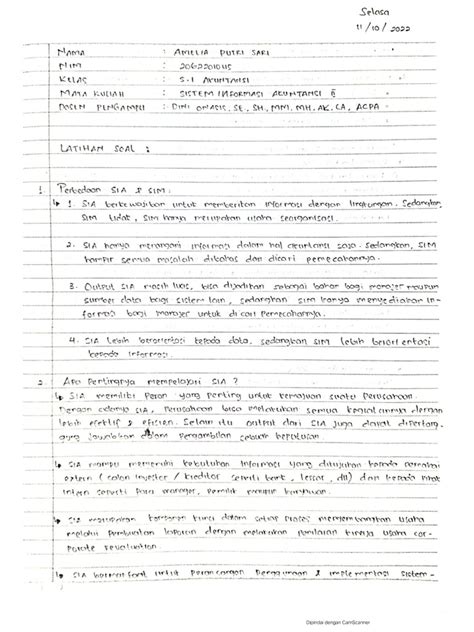 Selasa
11/10/2022
Nama : AMELIA PUTRI SARI
NIM
Kelas : S.1 AKUNTANSI
MATA KULIAH : SISTEM INFORMASI AKUNTANSI
DOSEN PENGAMPU : DINI ONASIS, SE, SH, MM, MH, AK, CA, ACPA
LATIHAN SOAL :
1. Perbedaan SIA & SIM :
↳ 1. SIA berkewajiban untuk memberikan informasi dengan lingkungan. Sedangkan,
SIM tidak, SIM hanya merupakan usaha seorganisasi.
2. SIA hanya menangani informasi dalam hal akuntansi saja. Sedangkan, SIM
hampir semua masalah dibahas dan dicari pemecahannya.
3. Output SIA masih luas, bisa dijadikan sebagai bahan bagi manajer maupun
sumber data bagi sistem lain, sedangkan SIM hanya menyediakan in-
formasi bagi manajer untuk dicari pemecahannya.
4. SIA lebih berorientasi kepada data, sedangkan SIM lebih berorientasi
kepada informasi.
2. Apa Pentingnya mempelajari SIA ?
↳ SIA memiliki Peran yang penting untuk kemajuan suatu Perusahaan.
Dengan adanya SIA, Perusahaan bisa melakukan semua kegiatannya dengan
lebih efektif & efisien. Selain itu output dari SIA juga dapat dipertang-
gung jawabkan dalam pengambilan sebuah keputusan.
↳ SIA mampu memenuhi kebutuhan informasi yang ditujukan kepada pemakai
extern (calon investor / kreditor seperti bank, lessor, dll) dan kepada pihak
intern seperti para manager, pemilik maupun karyawan.
↳ SIA merupakan kunci dalam setiap proses mengembangkan usaha
melalui pembuatan laporan dengan melakukan penilaian kinerja usaha cor-
porate revaluation.
↳ SIA bermanfaat untuk perancangan penggunaan & implementasi sistem-
Dipindai dengan CamScanner